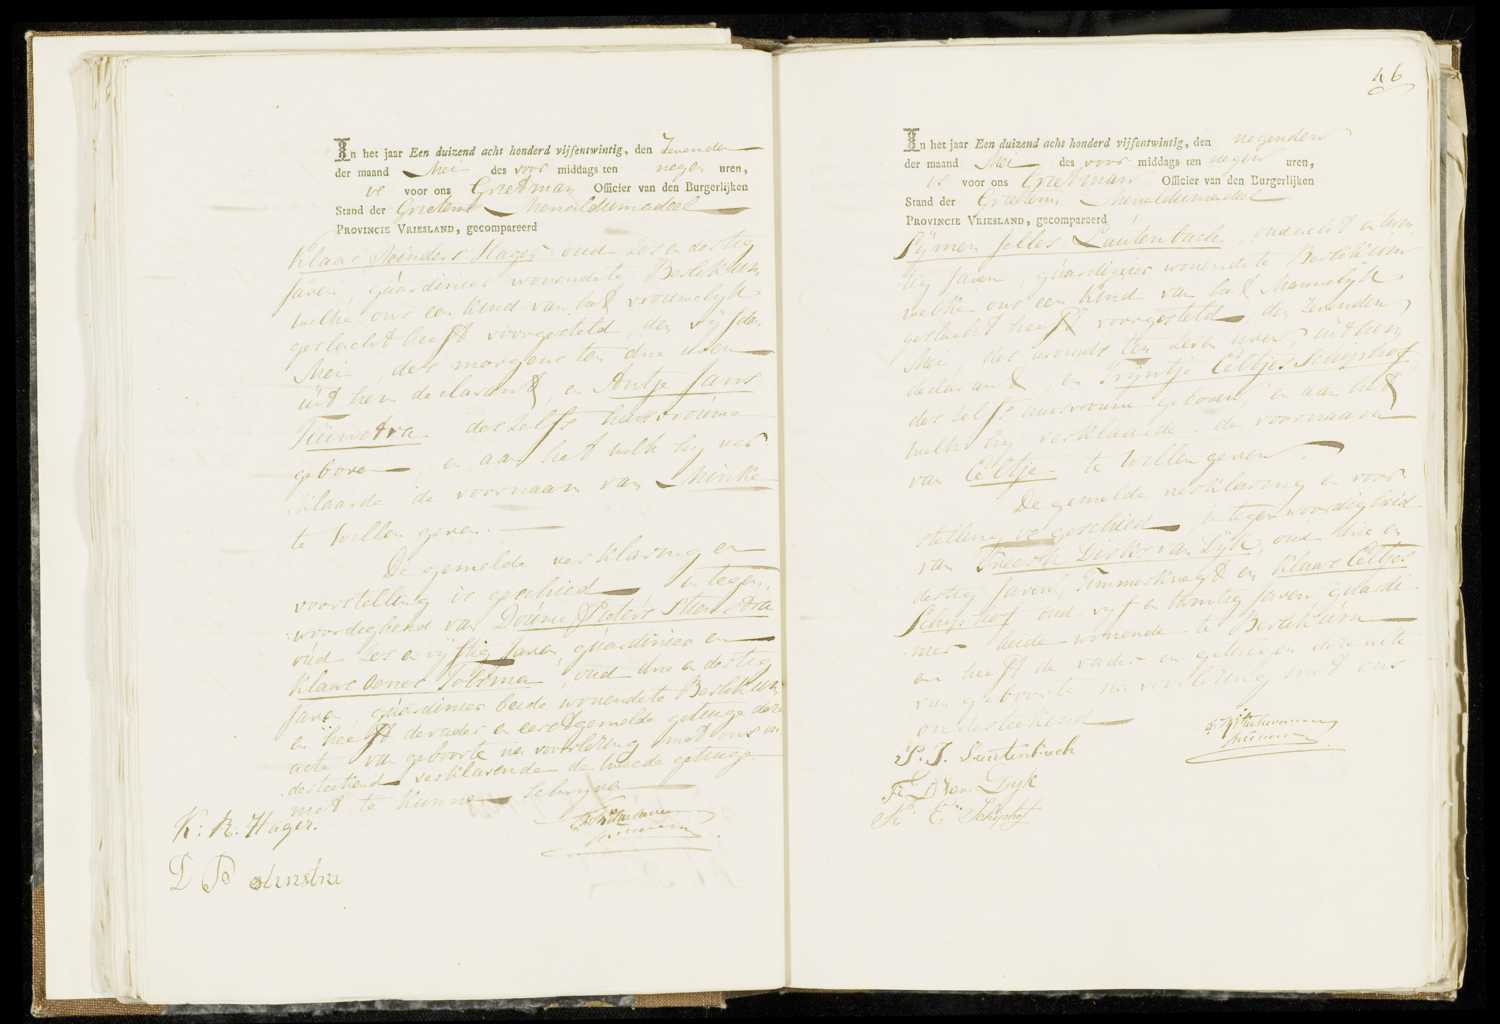 In het jaar Een duizend acht honderd vijfentwintig, den Zevenden
der maand Mei des voor middags ten negen uren,
is voor ons Grietman Officier van den Burgerlijken
Stand der Grietenij Menaldumadeel
PROVINCIE VRIESLAND, gecompareerd
Klaas Reinders Hager oud zes en dertig
Jaren, gúardinier wonende te Berlikum
welke ons een kind van het vrouwelijk
geslacht heeft voorgesteld, den vijfden
Mei des morgens ten drie uren
uit hem declarant, en Antje Jans
Tuinstra deszelfs huisvrouw
geboren en aan het welk hij ver
klaarde de voornaam van Minke
te willen geven.
De gemelde verklaring en
voorstelling is geschied in tegen
woordigheid van Douwe Pieters
oud zes en vijftig Jaren, gúardinier en
Klaas oud drie en dertig
Jaren gúardinier beide wonende te Berlikum
en heeft de vader en eerstgemelde getuige deze
acte van geboorte na voorlezing met ons on
derteekend verklarende de tweede getuige
niet te kunnen schrijven
K: R. Hager.
D P
46
In het jaar Een duizend acht honderd vijfentwintig, den negenden
der maand Mei des voor middags ten negen uren,
is voor ons Grietman Officier van den Burgerlijken
Stand der Grietenij Menaldumadeel
PROVINCIE VRIESLAND, gecompareerd
Sijmen Jelles Lautenbach, oud
tig Jaren, gúardinier wonende te Berlikum
welke ons een kind van het Mannelijk
geslacht heeft voorgesteld den Zevenden
Mei des avonds ten zeven uren, uit hem
declarant, en Trijntje Eeltjes Schijphof
deszelfs huisvrouw geboren, en aan het
welk hij verklaarde de voornaam
van Eeltje te willen geven.
De gemelde verklaring en voor
stelling is geschied in tegenwoordigheid
van Dirks van Dijk, oud drie en
dertig Jaren, Timmerknegt en Klaas Eeltjes
Schijphof oud vijf en twintig Jaren gúardi
nier beide wonende te Berlikum
en heeft de vader en getuigen deze acte
van geboorte na voorlezing met ons
onderteekend
S. J. Lautenbach
F D van Dijk
K E Schijphof